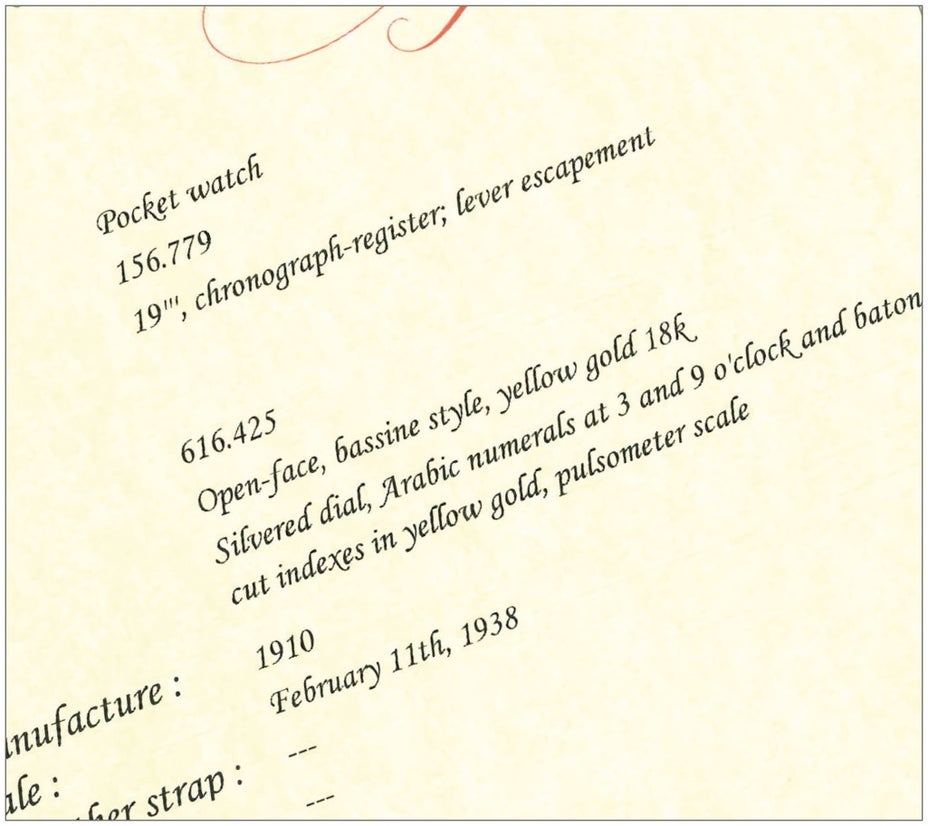 Pocket watch
156.779
19''', chronograph-register; lever escapement
616.425
Open-face, bassine style, yellow gold 18k
Silvered dial, Arabic numerals at 3 and 9 o'clock and baton
cut indexes in yellow gold, pulsometer scale
anufacture : 1910
ale : February 11th, 1938
ther strap : ---
---